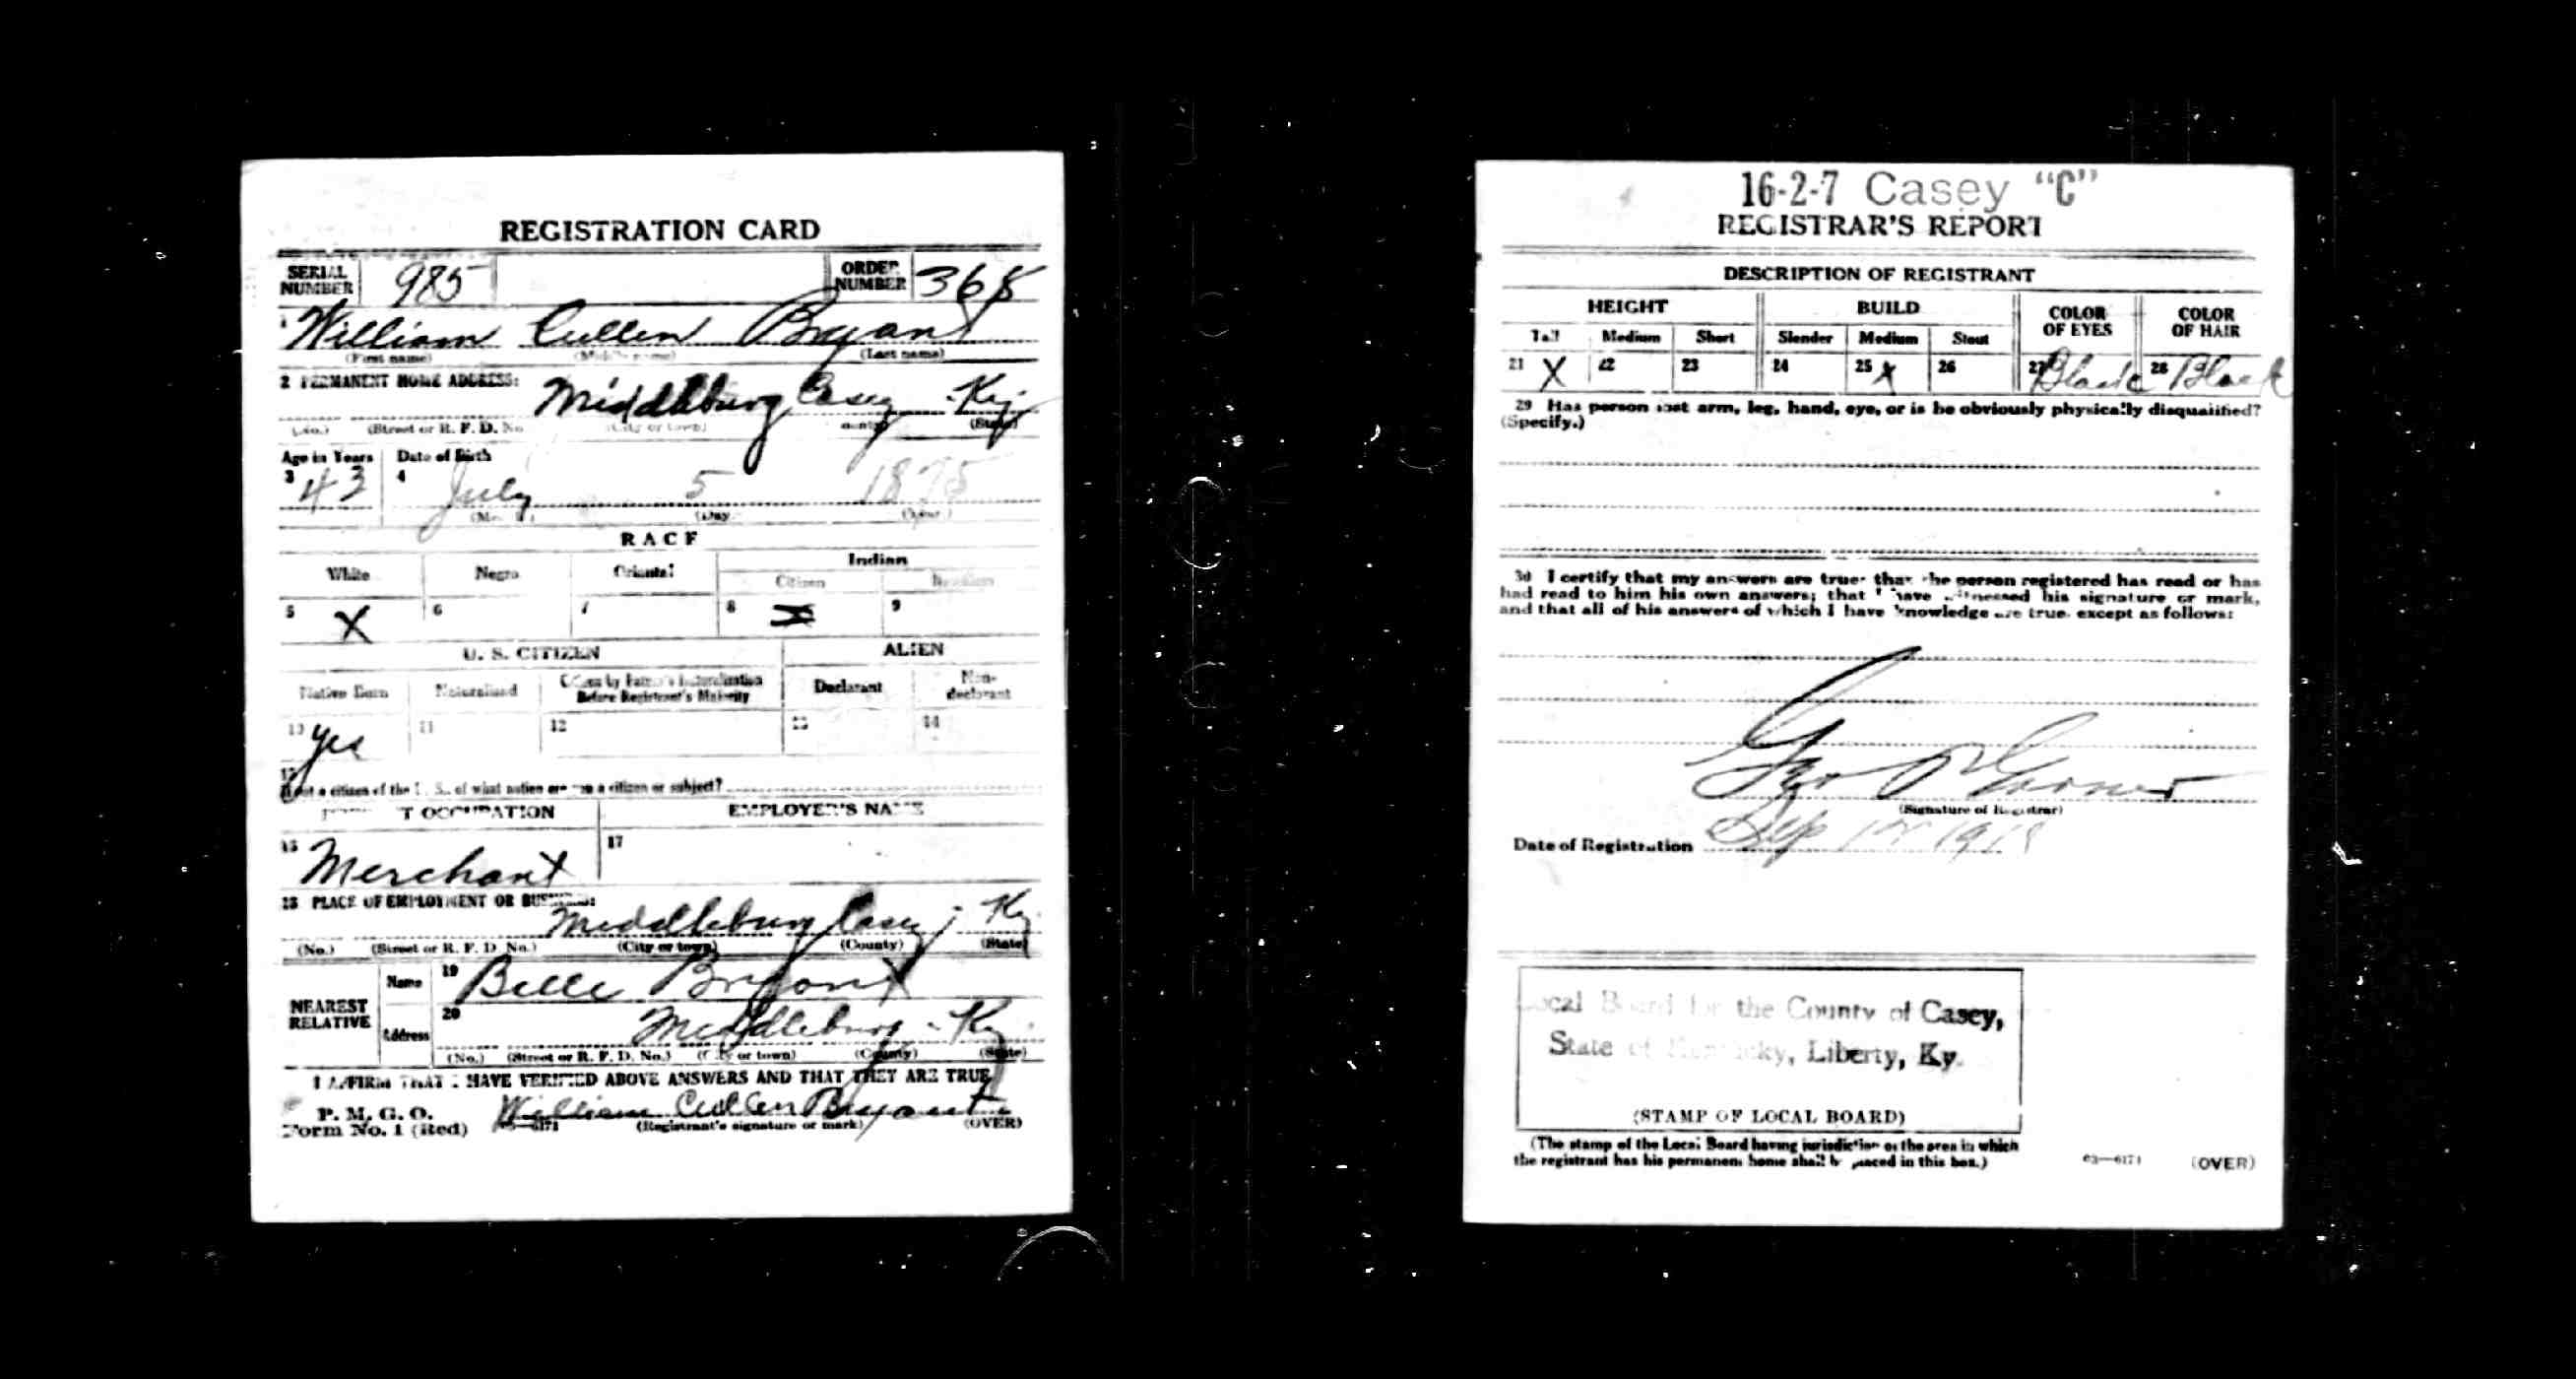 REGISTRATION CARD
SERIAL NUMBER 985 ORDER NUMBER 368
1 William Cullen Bryant
(First name) (Middle name) (Last name)
2 PERMANENT HOME ADDRESS: Middleburg Casey Ky.
(No.) (Street or R. F. D. No (City or town) (State)
Age in Years Date of Birth
3 43 4 July 5 1875
(Day (Year)
RACE
White Negro Oriental Indian
Citizen
5 X 6 7 8 X 9
U. S. CITIZEN ALIEN
Native Born Naturalized Citizen by Father's Naturalization Before Registrant's Majority Declarant Non-declarant
10 yes 11 12 13 14
15
If not a citizen of the U. S., of what nation are you a citizen or subject?
OCCUPATION EMPLOYER'S NAME
16 Merchant 17
18 PLACE OF EMPLOYMENT OR BUSINESS:
Middleburg Casey Ky.
(No.) (Street or R. F. D. No.) (City or town) (County) (State)
NEAREST RELATIVE
Name 19 Belle Bryant
Address 20 Middleburg - Ky.
(No.) (Street or R. F. D. No.) (City or town) (County) (State)
I AFFIRM THAT I HAVE VERIFIED ABOVE ANSWERS AND THAT THEY ARE TRUE
P. M. G. O.
Form No. 1 (Red) William Cullen Bryant
(Registrant's signature or mark) (OVER)
16-2-7 Casey "C"
REGISTRAR'S REPORT
DESCRIPTION OF REGISTRANT
HEIGHT BUILD COLOR OF EYES COLOR OF HAIR
Tall Medium Short Slender Medium Stout
21 X 22 23 24 25 X 26 27 Black 28 Black
29 Has person lost arm, leg, hand, eye, or is he obviously physically disqualified?
(Specify.)
30 I certify that my answers are true; that the person registered has read or has
had read to him his own answers; that I have witnessed his signature or mark,
and that all of his answers of which I have knowledge are true, except as follows:
Geo
(Signature of Registrar)
Date of Registration Sep 12 1918
Local Board for the County of Casey,
State of Kentucky, Liberty, Ky.
(STAMP OF LOCAL BOARD)
(The stamp of the Local Board having jurisdiction of the area in which
the registrant has his permanent home shall be placed in this box.)
03—6171 (OVER)